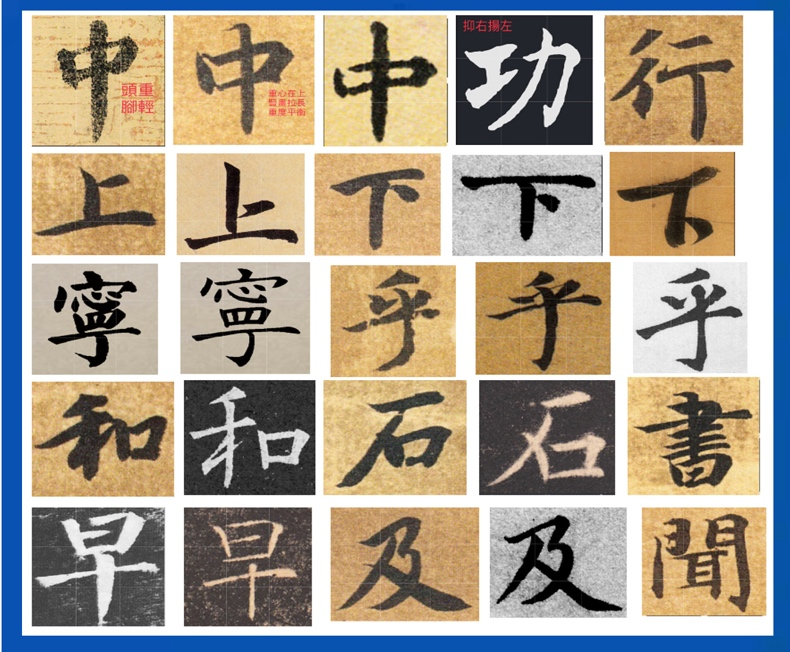 中 中 中 功 行
頭重
腳輕
重心在上
豎畫拉長
重度平衡
抑右揚左
上 上 下 下 下
寧 寧 乎 乎 乎
和 和 石 石 書
早 早 及 及 聞